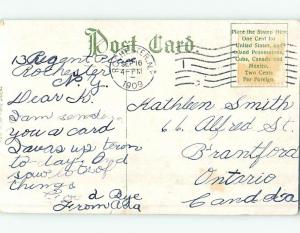 Post Card.
Place the Stamp Here
One Cent for
United States, and
Island Possessions,
Cuba, Canada and
Mexico.
Two Cents
For Foreign.
SEP 16
4-PM
1909
13 Regent
Rochester
N.Y.
Dear K.
I am sending
you a card
I was up town
to-day. And
saw lots of
things
Good Bye
From Ada
Kathleen Smith
66 Alfred St.
Brantford
Ontario
Canada